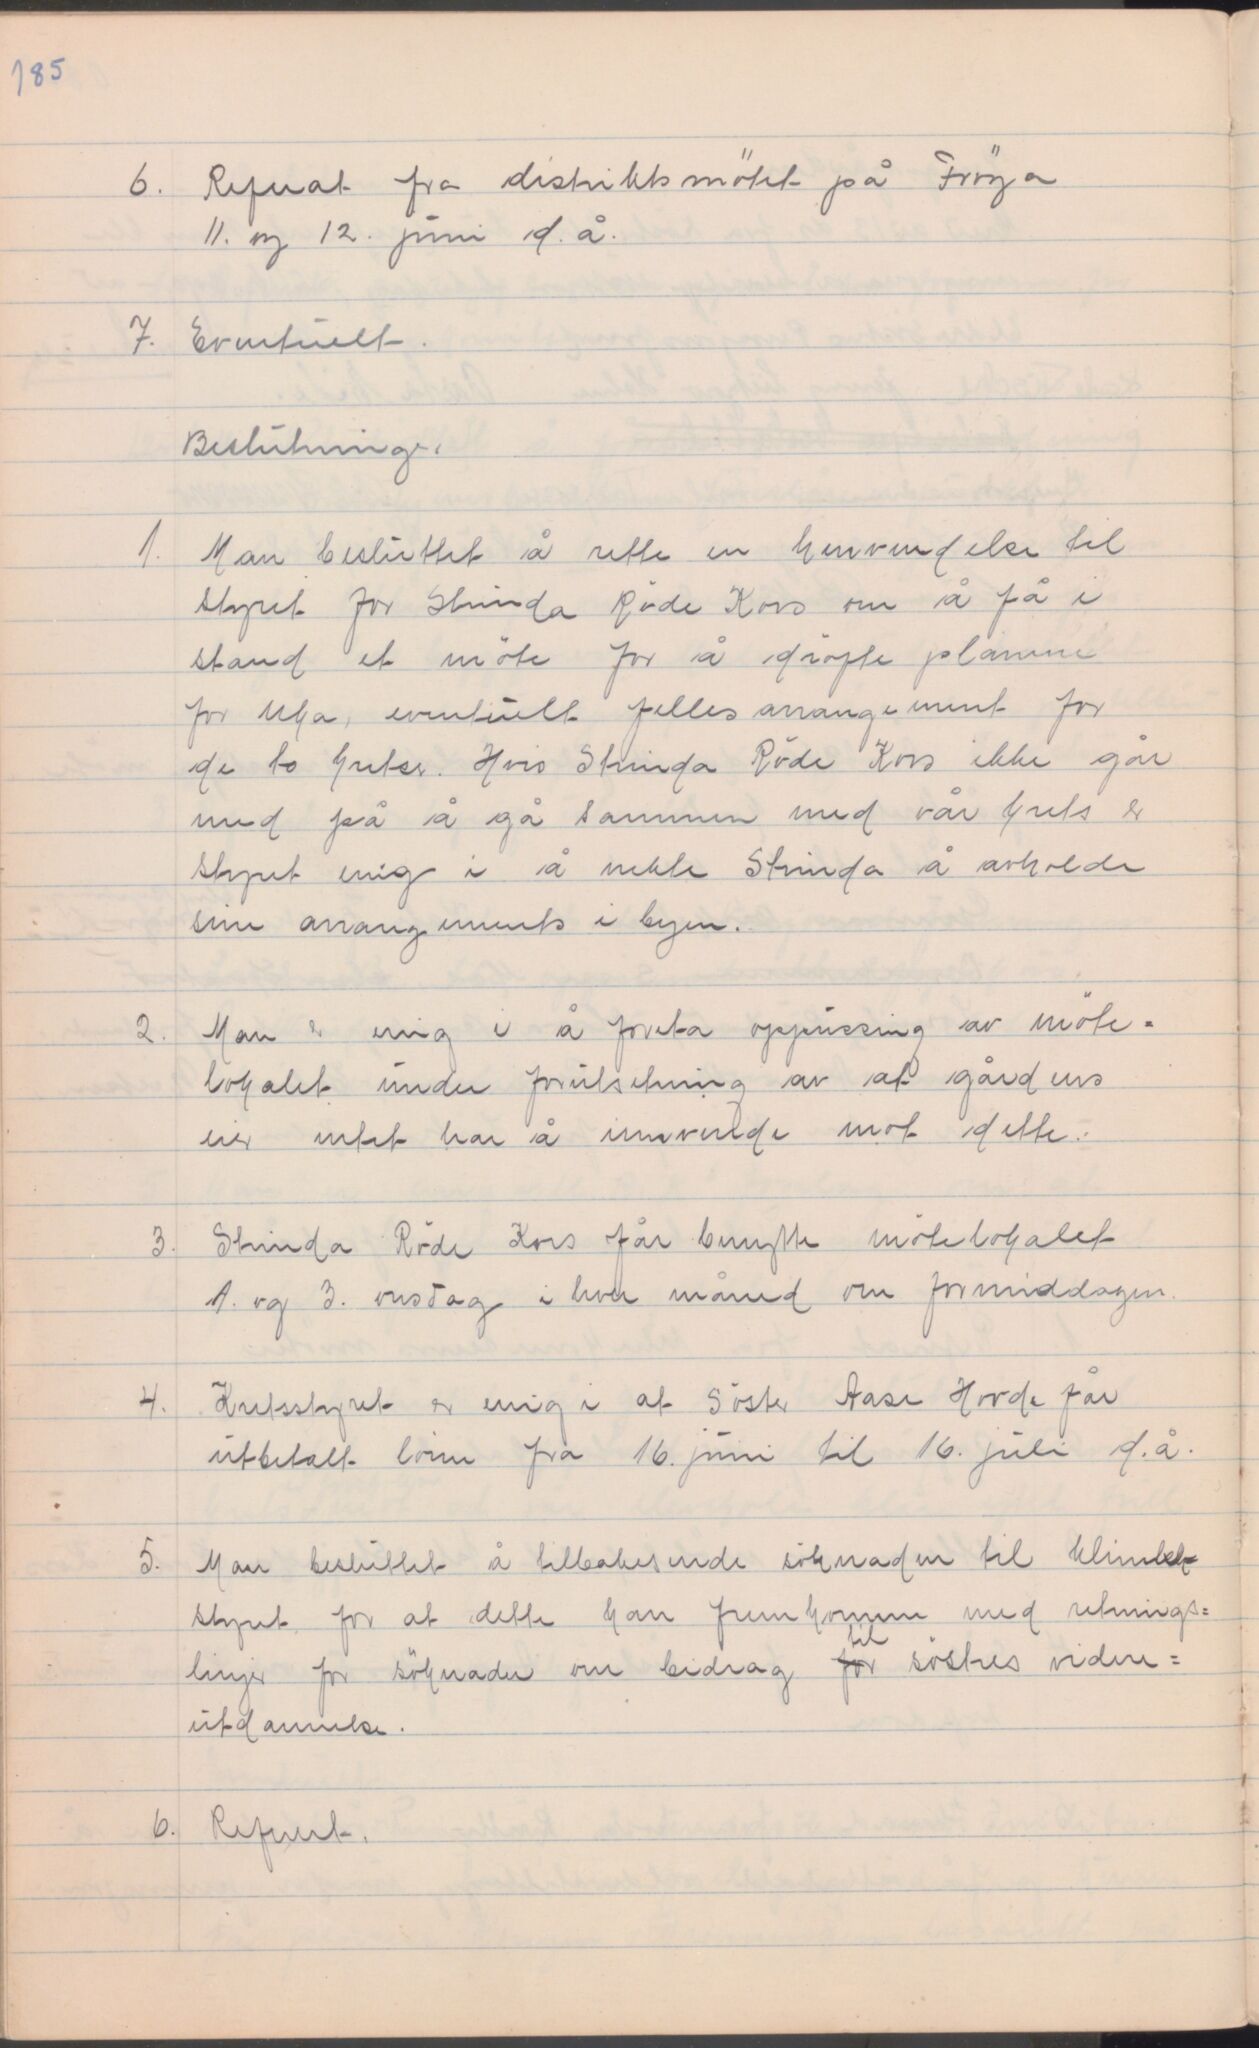 185
6. Referat fra distriktsmötet på Fröya
11. og 12. juni d.å.
7. Eventuelt.
Beslutninger
1. Man besluttet å rette en henvendelse til
styret for Strinda Röde Kors om å få i
stand et möte for å dröfte planene
for Uka, eventuelt fellesarrangement for
de to kretser. Hvis Strinda Röde Kors ikke går
med på å gå sammen med vår krets er
styret enig i å nekte Strinda å avholde
sine arrangements i byen.
2. Man er enig i å foreta oppussing av möte=
lokalet under forutsetning av at gårdens
eier intet har å innvende mot dette.
3. Strinda Röde Kors får benytte mötelokalet
1. og 3. onsdag i hver måned om formiddagen.
4. Kretsstyret er enig i at Söster Aase Hovde får
utbetalt lönn fra 16. juni til 16. juli d.å.
5. Man besluttet å tilbakesende söknaden til klinikk
styret for at dette kan fremkomme med retnings=
linjer for söknader om bidrag for til söstres videre=
utdannelse.
6. Referert.